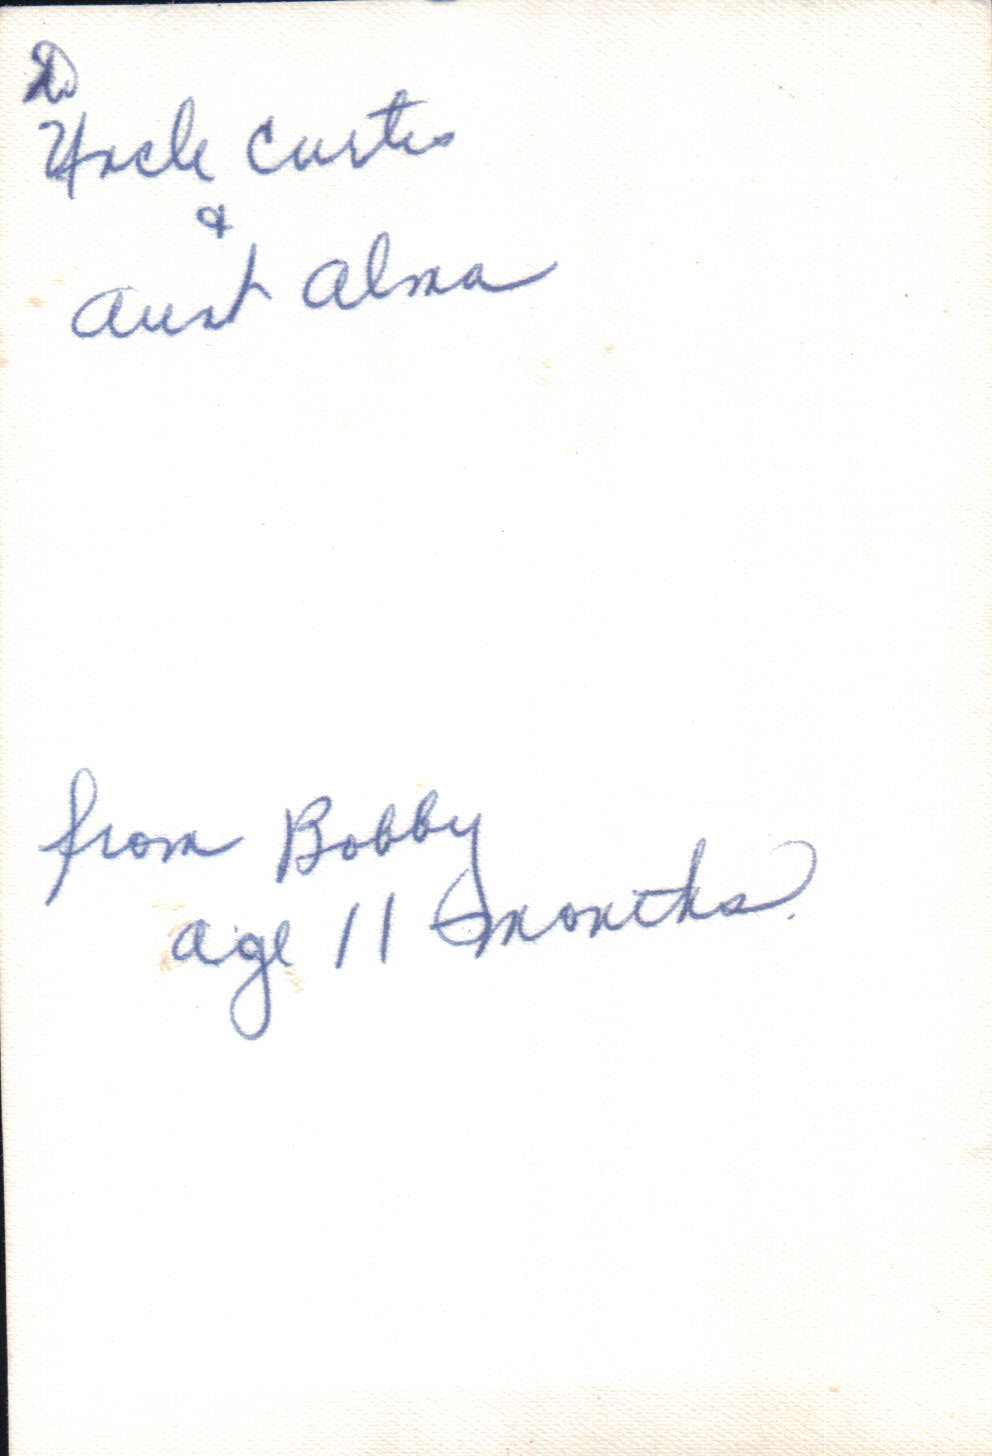 To
Uncle Curtis
&
Aunt Alma
from Bobby
age 11 months.